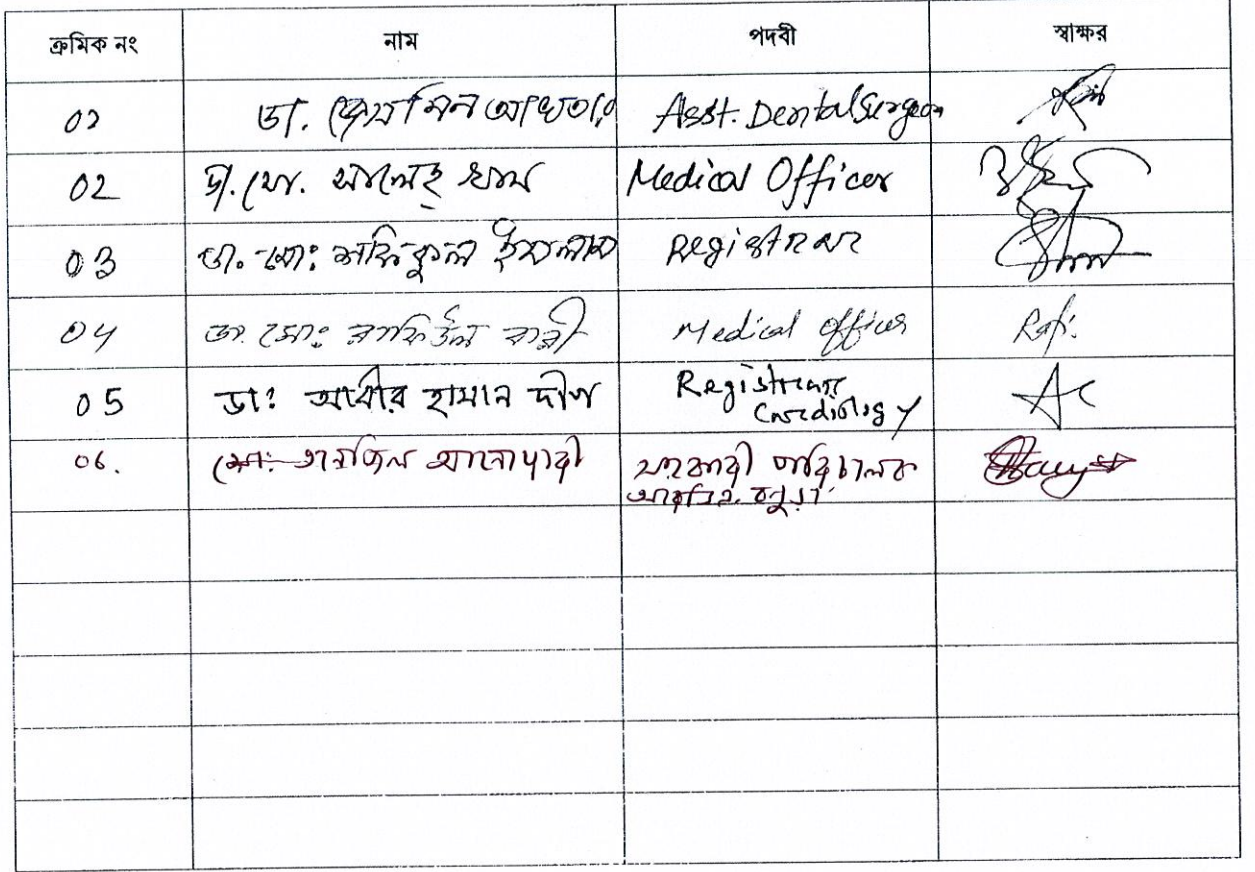 ক্রমিক নং নাম পদবী স্বাক্ষর
০১ ডা. জেসমিন আখতার Asst. Dental Surgeon
02 ডা. মো. সালেহ্ খান Medical Officer
03 ডা. মো: শফিকুল ইসলাম Registrar
04 ডা. মো: রাফিউল বারী Medical Officer Rafi.
05 ডা: আবীর হাসান দীপ Registrar, Cardiology
06. মো: তানজিল সহকারী পরিচালক